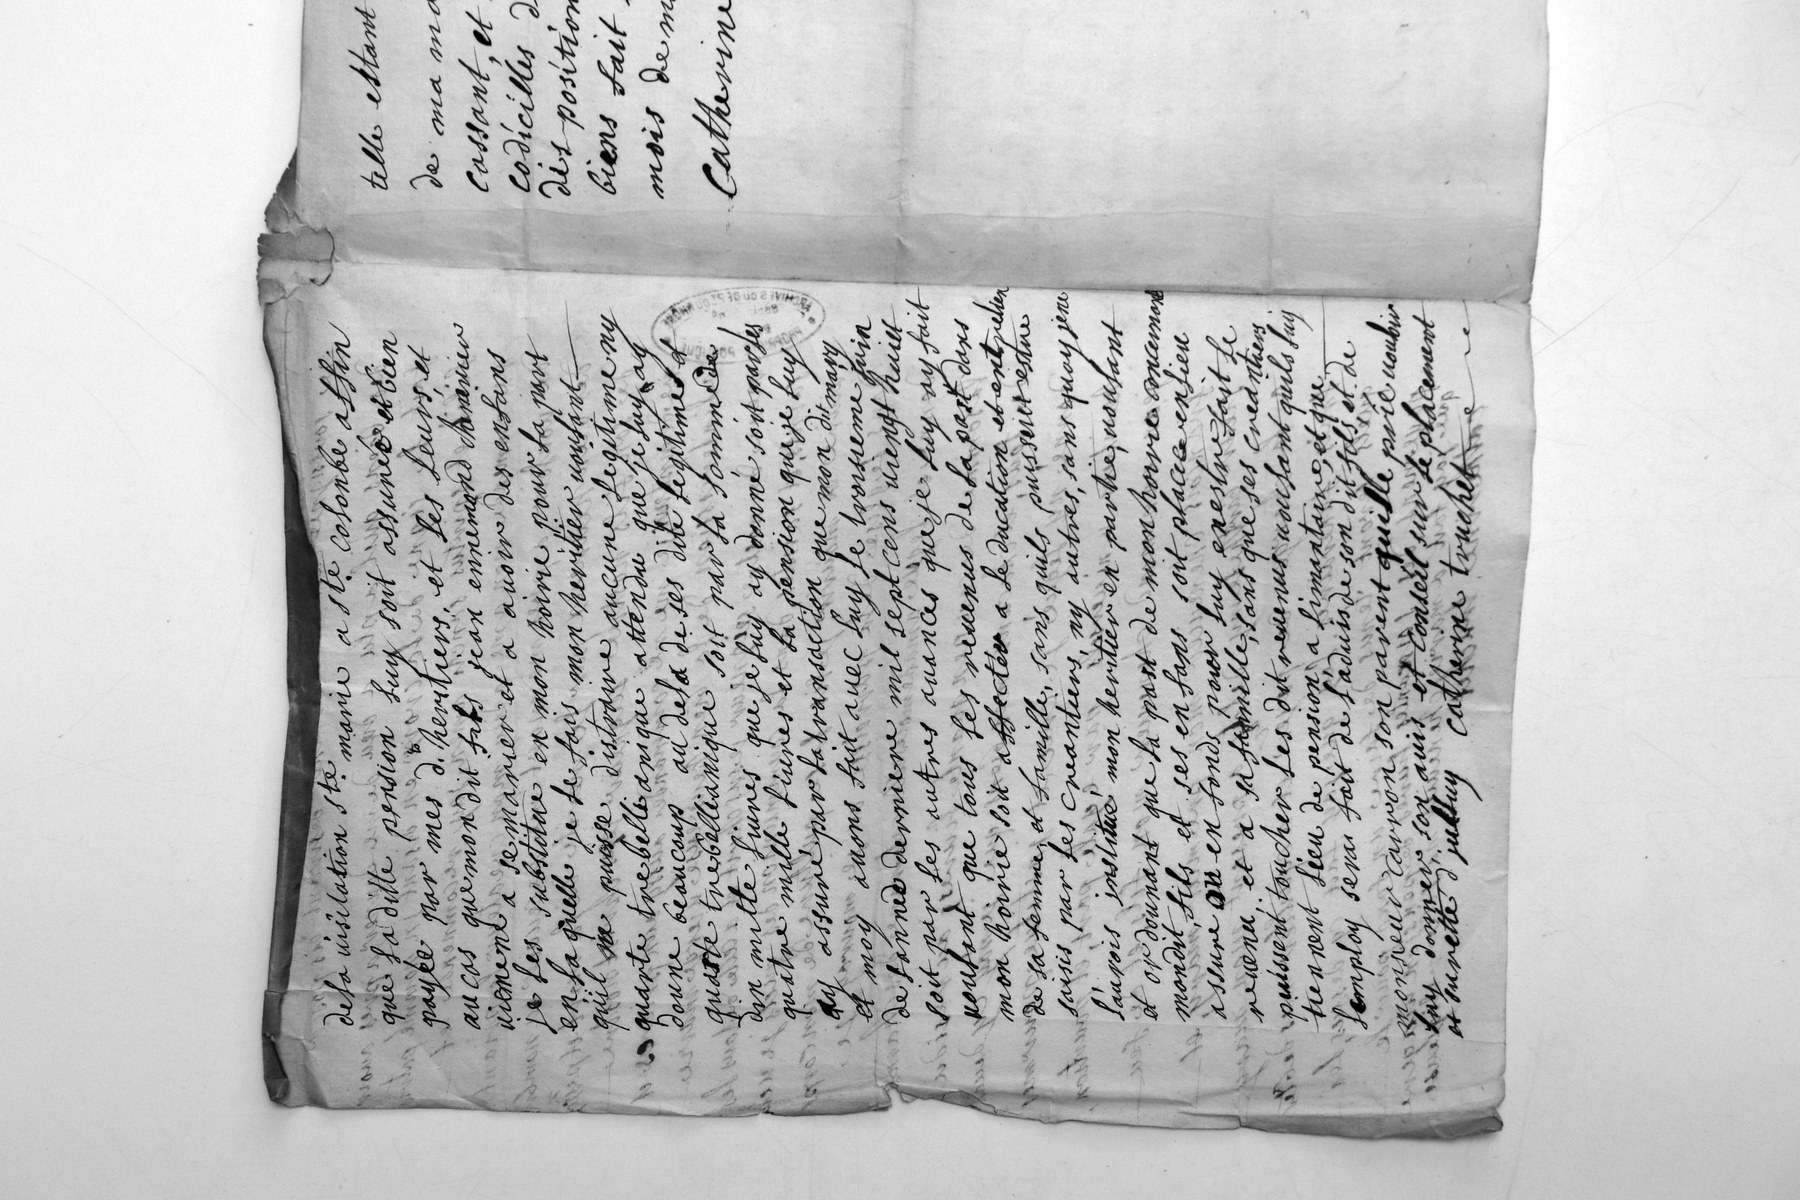 dela visitation ste marie a ste colonbe affin
que la ditte pension luy soit assurée et bien
payée par mes d. heritiers, et les leurs, et
au cas que mon dit fils jean ennemond
vienent a se marier et a avoir des enfans
je les substitue en mon hoirie pour la part
en laquelle je le fais mon heritier voulant
quil ne puisse distraire aucune legitime ny
quarte trebellianique attendu que je luy ay
donne beaucoup au dela de ses dite legitime et
quarte trebellianique soit par la somme de
dix mille livres que je luy ay donné soit par les
quatre mille livres et la pension que je luy
ay assuré par la transaction que mon dit mary
et moy avons fait avec luy le troisieme juin
de lannée derniere mil sept cens vingt huict
soit par les autres avances que je luy ay fait
voulant que tous les revenus de la part dans
mon hoirie soit affectée a leducation et entretien
de sa femme, et famille, sans quils puissent estre
saisis par les creantiers, ny autres, sans quoy je ne
l'aurois institué mon heritier en partie, voulant
et ordonnant que la part de mon hoirie concernant
mondit fils et ses enfans soit placée en lieu
assuré ou en fonds pour luy en estre fait le
revenu et a sa famille, sans que ses creantiers
puissent toucher les dit revenus voulant quils luy
tiennent lieu de pension alimantaire, et que
lemploy sera fait de l'advis de son dit fils et de
monsieur carron son parent quelle prie vouloir
luy donner son avis et conseil sur le placement
et surette d'iceluy catherine truchet
telle estant
de ma
cassant, et
codicilles
dis position
biens fait
mois de
Catherine